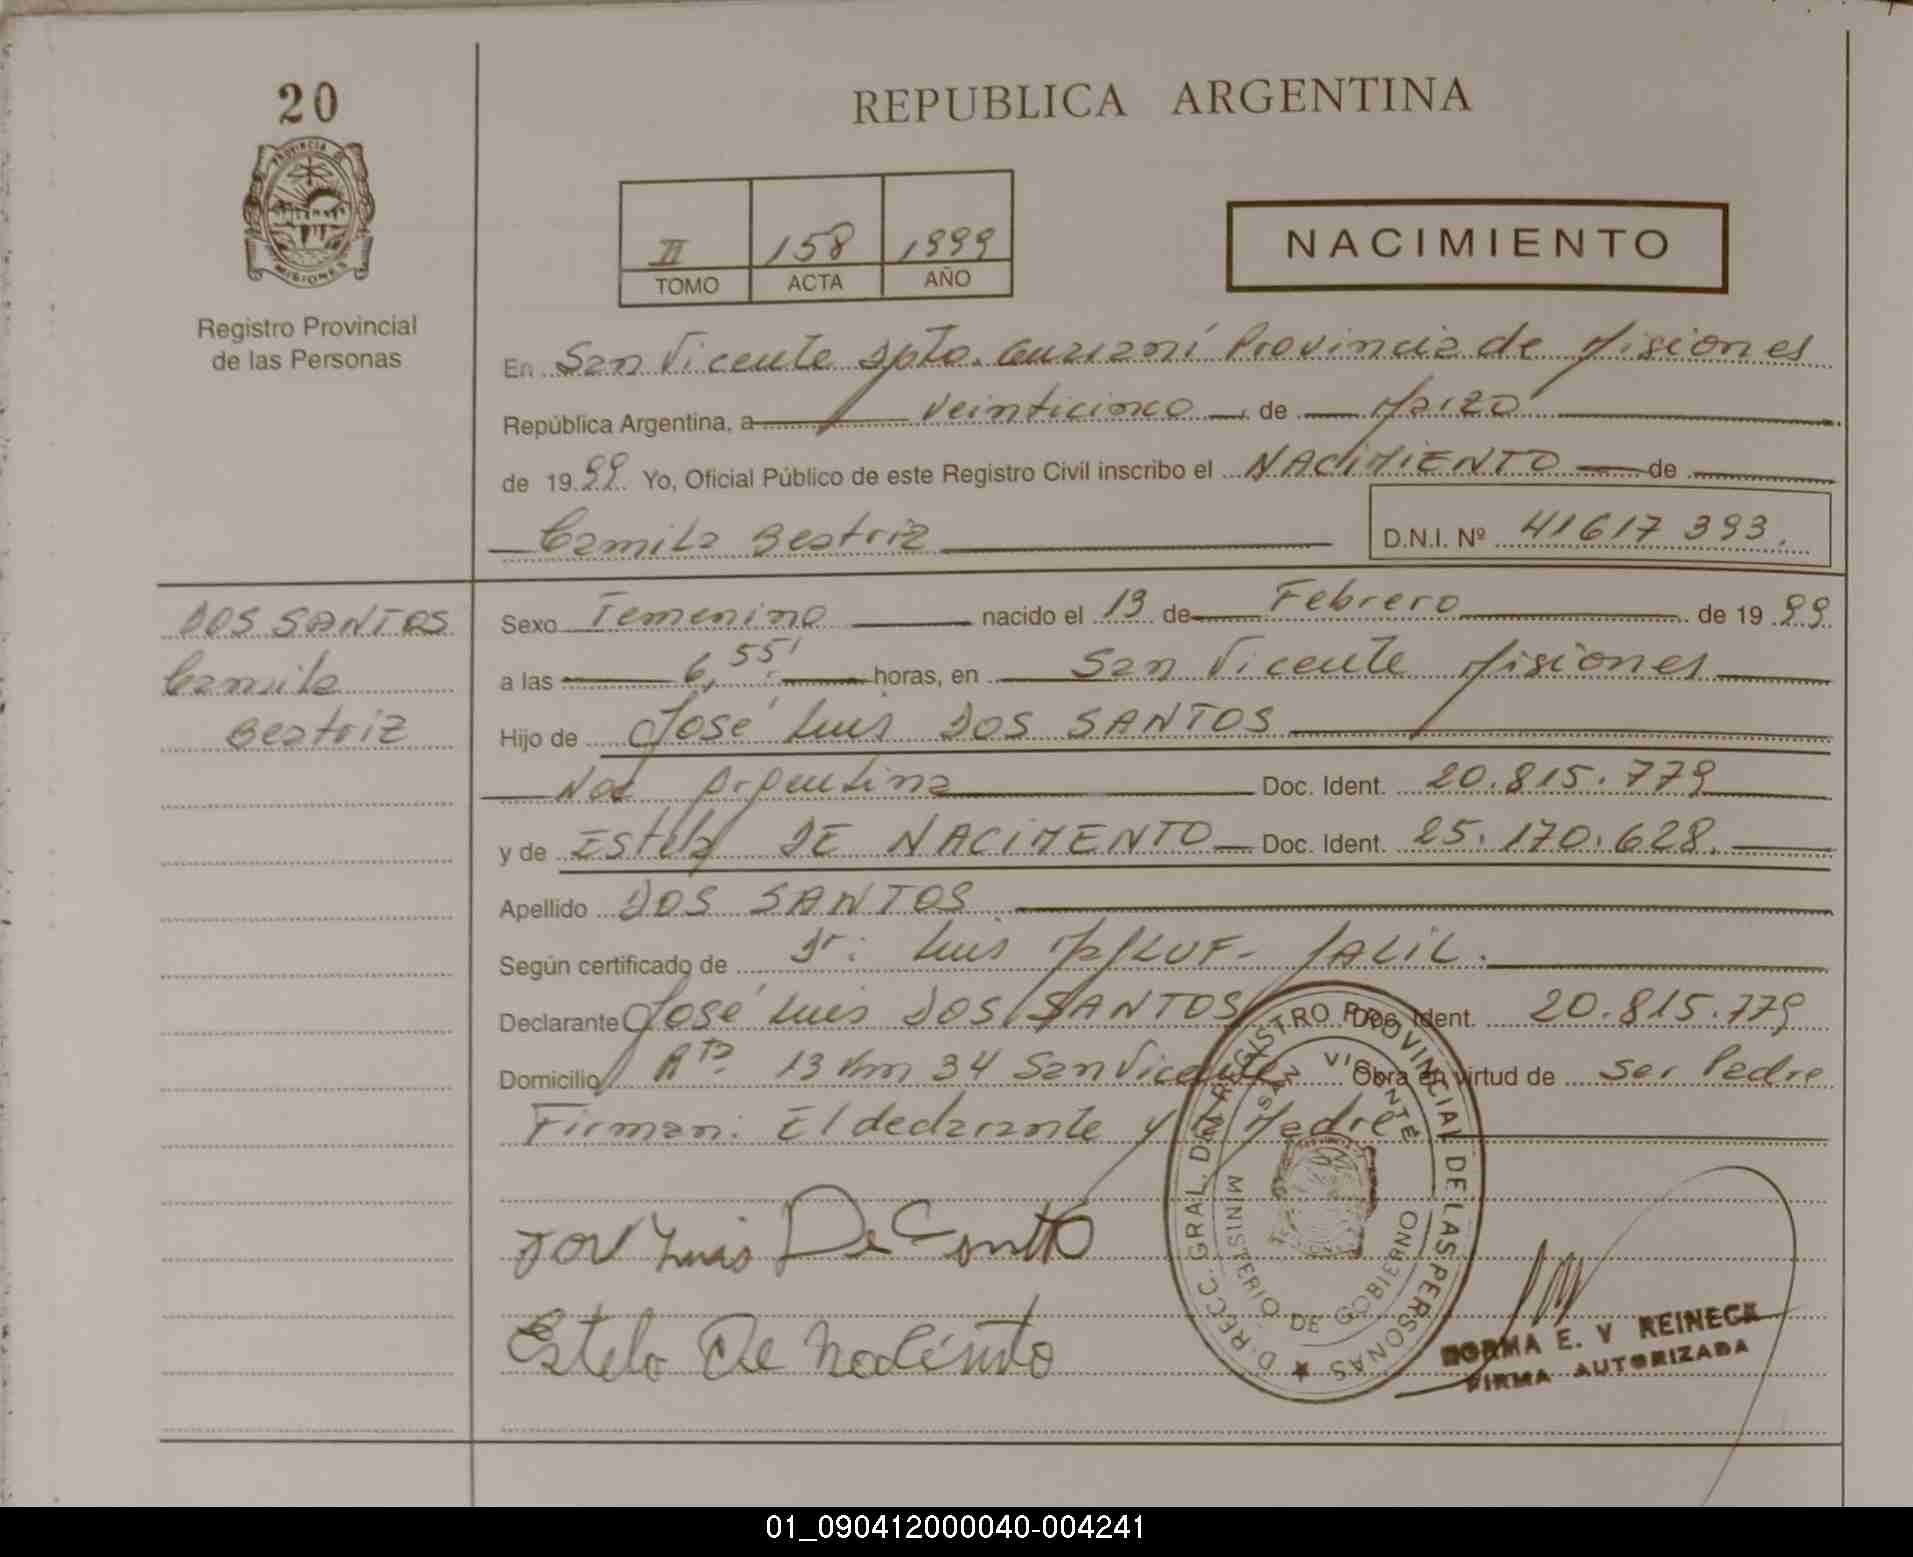 20
PROVINCIA DE
MISIONES
Registro Provincial
de las Personas
REPUBLICA ARGENTINA
II 158 1999
TOMO ACTA AÑO
NACIMIENTO
En San Vicente Dpto. Guaraní Provincia de Misiones
República Argentina, a veinticinco de Marzo
de 1999 Yo, Oficial Público de este Registro Civil inscribo el NACIMIENTO de
Camila Beatriz D.N.I. Nº 41617 393.
DOS SANTOS
Camila
Beatriz
Sexo Femenino nacido el 13 de Febrero de 1999
a las 6,55' horas, en San Vicente Misiones
Hijo de José Luis DOS SANTOS
Nac Argentina Doc. Ident. 20.815.779
y de Estela DE NACIMENTO Doc. Ident. 25.170.628.
Apellido DOS SANTOS
Según certificado de Dr: Luis JALIL.
Declarante José Luis DOS SANTOS Doc. Ident. 20.815.779
Domicilio Rta 13 Km 34 San Vicente Obra en virtud de ser Padre
Firman: El declarante y la Madre
DIRECC. GRAL. DEL REGISTRO PROVINCIAL DE LAS PERSONAS
SAN VICENTE
MINISTERIO DE GOBIERNO
Luis
Estela De
NORMA E. V REINECK
FIRMA AUTORIZADA
01_090412000040-004241